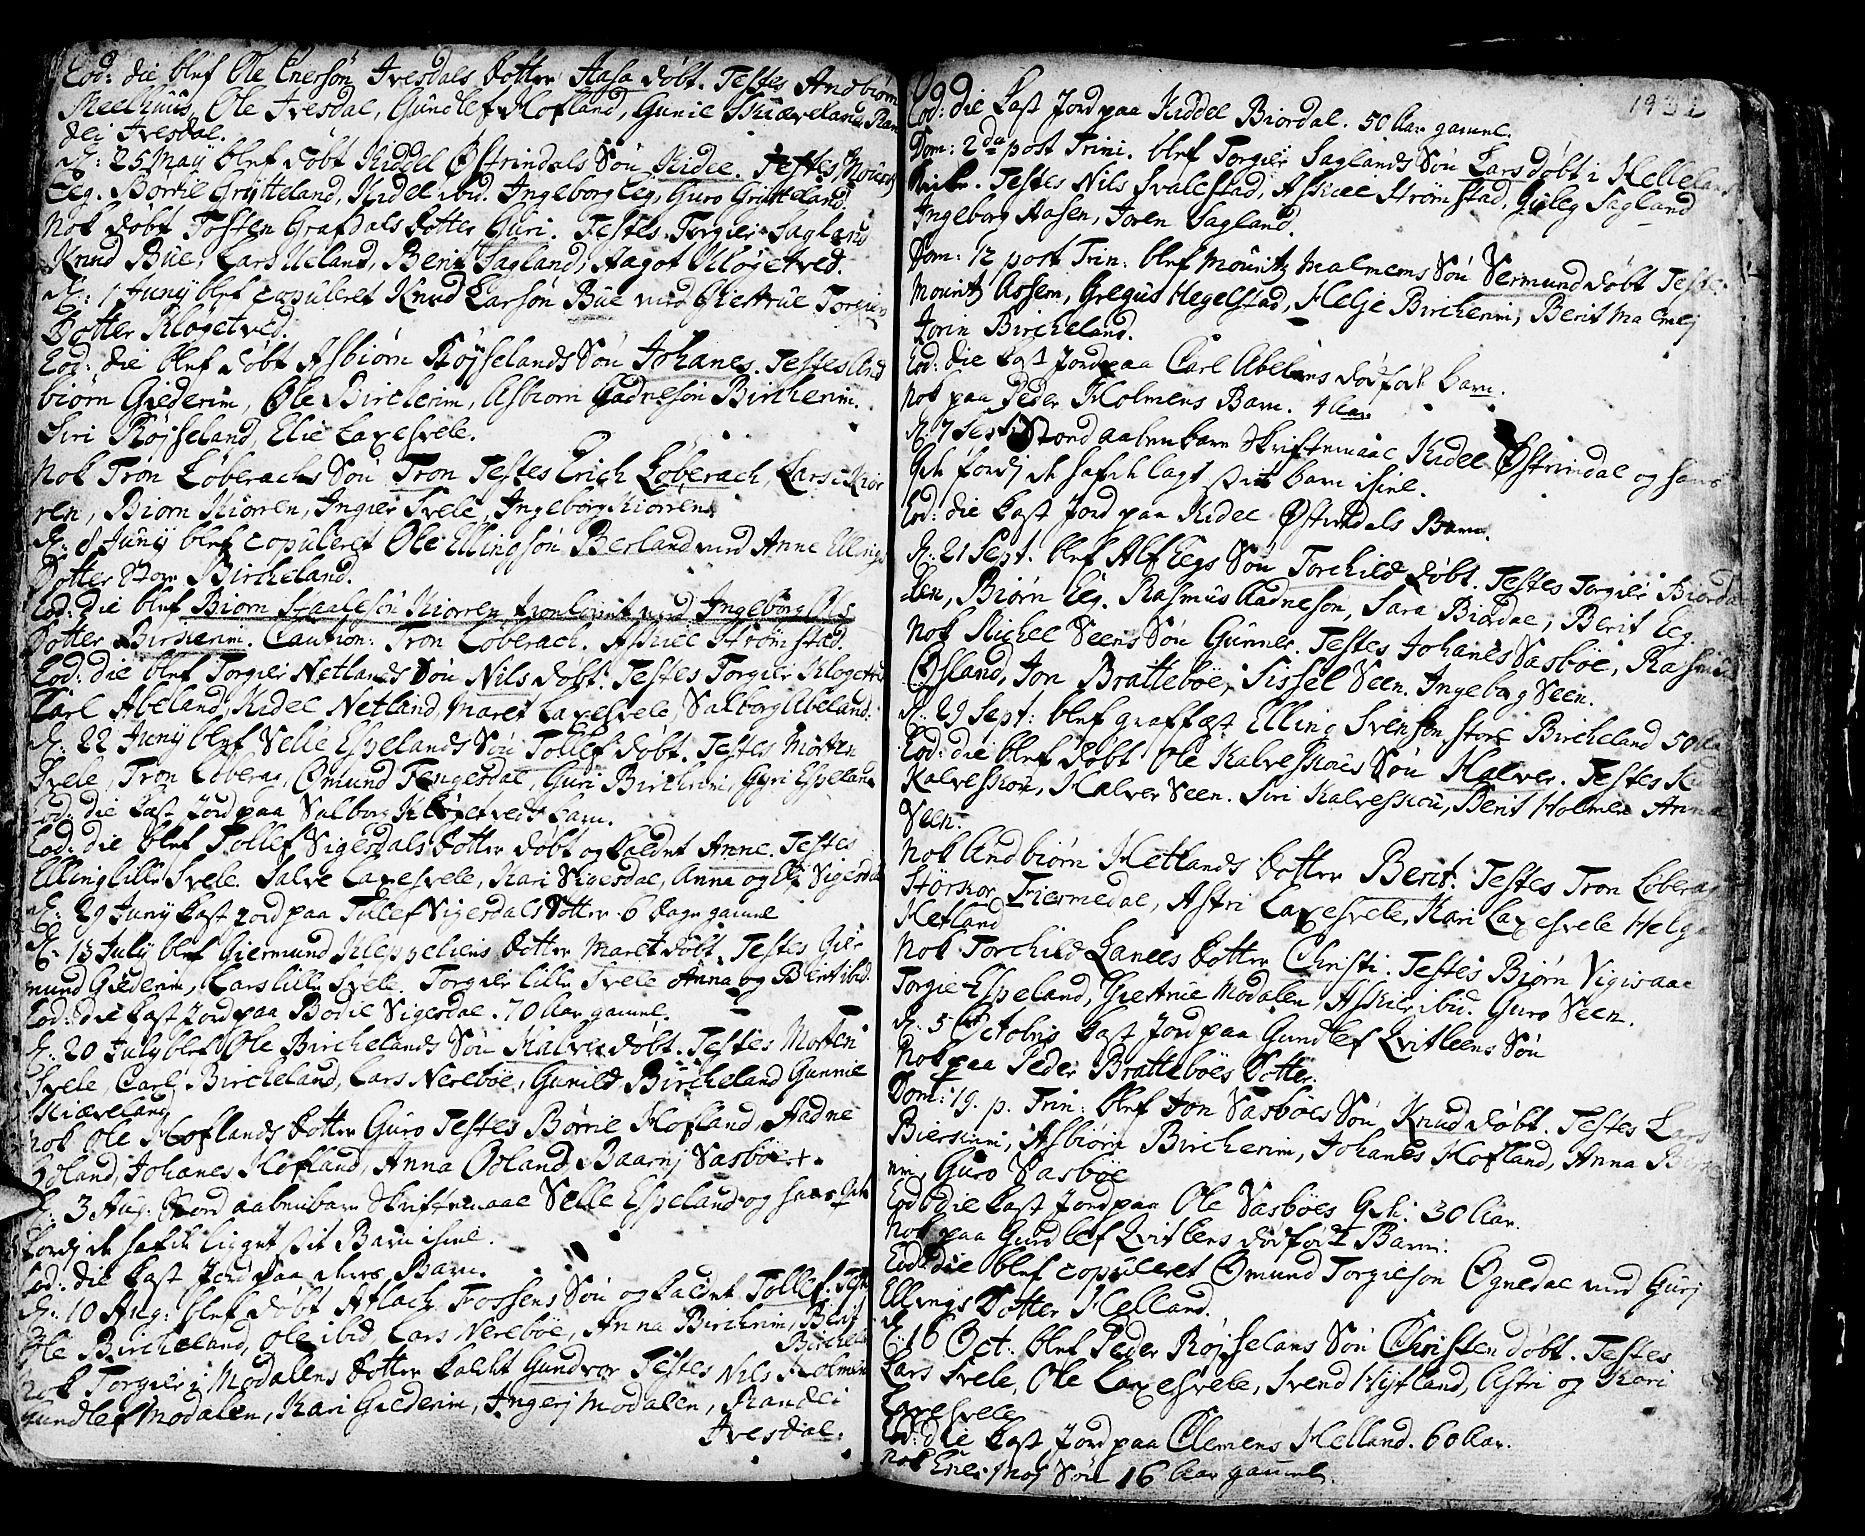 Eod: die blef Ole Enersøn Ivesdals Dotter Aasa døbt. Testes Andbiørn
Meelhuus, Ole Ivesdal, Gundlef Hofland, Gunil Skiæveland, Ran
dei Ivesdal.
25 May blef døbt Kiddel Østrindals Søn Kidel. Testes Mouritz
Eeg. Bertil Grytteland, Kidel ibid. Ingeborg Eeg, Guro Grytteland.
Nok døbt Tosten Grafdals Dotter Guri. Testes Torgier Sagland
Knud Bue, Lars Ueland, Berit Sagland, Aagot Kløgetved.
1 Juny blef copuleret Knud Larsøn Bue med Giertrue Torgiers
Dotter Kløgetved.
Eod: die blef døbt Asbiørn Røjselands Søn Johanes. Testes And
biørn Giederim, Ole Bircherim, Asbiørn Gadnesøn Bircherim.
Siri Røjseland, Elie Laxesvele.
Nok Tron Løberachs Søn Tron Testes Erich Løberach, Lars Kiør
ren, Biørn Kiørren, Ingier Svele, Ingeborg Kiørren.
8 Juny blef copuleret Ole Ellingsøn Berland med Anne Ellings
Dotter Store Bircheland.
Eod: die blef Biørn Staalesøn Kiørren trolovet med Ingeborg Ols
Dotter Birkerim. Caution: Tron Løberach. Askiel Strømstad.
Eod: die blef Torgier Netlands Søn Nils døbt. Testes Torgier Kløgetved
Carl Abeland, Kidel Netland, Maret Laxesvele, Salborg Abeland.
22 Juny blef Selle Espelands Søn Tollef døbt. Testes Morten
Svele, Tron Løberag, Ømund Tengesdal, Guri Bircherim, Gyri Espeland
Eod: die Kast Jord paa Salborg Kløgetvedt barn.
Eod: die blef Tollef Sigesdals Dotter døbt og kaldet Anne. Testes
Elling lille Svele. Salve Laxesvele, Kari Sigesdal, Anna og Eli Sigesdal
29 Juny Kast Jord paa Tollef Vigesdals Dotter 6 Dage gamel
13 July blef Giermund Kleppeliens Dotter Maret døbt. Testes Gier
mund Giederim, Lars lille Svele. Torgier lille Svele Anna og Berit ibid.
Eod: die Kast Jord paa Bodil Sigesdal. 70 Aar gamel.
20 July blef Ole Birchelands Søn Halvor døbt. Testes Morten
Svele, Carl Bircheland, Lars Nerebøe, Gunild Bircheland Gunnil
Skiæveland
Nok Ole Hoflands Dotter Guro Testes Børrie Hofland, Aadne
Odland, Johanes Hofland, Anna Odland, Baarnj Sasbøe.
3 Aug: Stod aabenbare Skriftemaal Selle Espeland og hans Qde
fordj de hafde ligget sit Barn ihiel.
Eod: die Kast Jord paa deres Barn.
10 Aug: blef døbt Aslach Fossens Søn og kaldet Tollef. Testes
Ole Bircheland, Ole ibid, Lars Nerebøe, Anna Bircherim, Berit
Birchel
Nok Torgier i Modalens Dotter kaldet Gundvor Testes Nils Holmen
Gundlef Modalen, Kari Giederim, Ingerj Modalen, Randei
Ivesdal.
1732
Eod: die Kast Jord paa Kiddel Biordal. 50 Aar gamel.
Dom: 2da post Trini. blef Torgier Saglands Søn Lars døbt i Hellelands
Kirke. Testes Nils Svalestad, Askiel Strømstad, Sagland
Ingeborg Aasen, Joren Sagland.
Dom: 12 post Trin: blef Mouritz Malmems Søn Vermund døbt Testes
Mouritz Assem, Gregus Hegelstad, Helje Bircherim, Berit Malmej
Jorin Bircheland.
Eod: die Kast Jord paa Carl Abelans dødfødt barn.
Nok paa Peder Holmens Barn. 4 Aar
7 Sept: Stod aabenbare Skriftemaal Kidel Østrindal og hans
Qde fordj de hafde lagt sit barn ihiel.
Eod: die Kast Jord paa Kidel Østrindals Barn.
21 Sept. blef Alf Eegs Søn Torchild døbt. Testes Torgier Biorda
len, Biørn Eeg. Rasmus Aadnesøn, Sara Biordal, Berit Eeg.
Nok Michel Seens Søn Gunner. Testes Johanes Sasbøe, Rasmus
Øsland, Jon Brattebøe, Sissel Seen. Ingeborg Seen.
29 Sept: blef graffæst Elling Svensøn store Bircheland 50 Aar
Eod: die blef døbt Ole Kalveskous Søn Halver. Testes
Kalveskou, Halver Seen. Siri Kalveskou, Berit Holmen Anna
Seen.
Nok Andbiørn Hetlands Dotter Berit. Testes Tron Løberag
Størkor Tiermedal, Astri Laxesvele, Kari Laxesvele Helge
Hetland
Nok Torchild Lanees Dotter Christi. Testes Biørn Vigisaae
Torgie Espeland, Giertrue Modalen, Askier ibid. Guro Seen.
5 Octobris Kast Jord paa Gundlef Qvitleens Søn
Nok paa Peder Brattebøes Dotter.
Dom: 19. p. Trin: blef Jon Sasbøes Søn Knud døbt. Testes Lars
Bierkrim, Asbiørn Bircherim, Johanes Hofland, Anna Birche
rim, Guro Sasbøe
Eod: die Kast Jord paa Ole Sasbøes Qde: 30 Aar.
Nok paa Gundlef Qvitlens dødfødt Barn.
Eod: die blef copuleret Ømund Torgiesøn Øgnedal med Gurj
Ellings Dotter Helland.
16 Oct: blef Peder Røjselans Søn Christen døbt. Testes
Lars Svele, Ole Laxesvele, Svend Hytland, Astri og Kari
Laxesvele
Eod: die Kast Jord paa Clemens Helland. 60 Aar.
Nok Søn 16 Aar gamel.